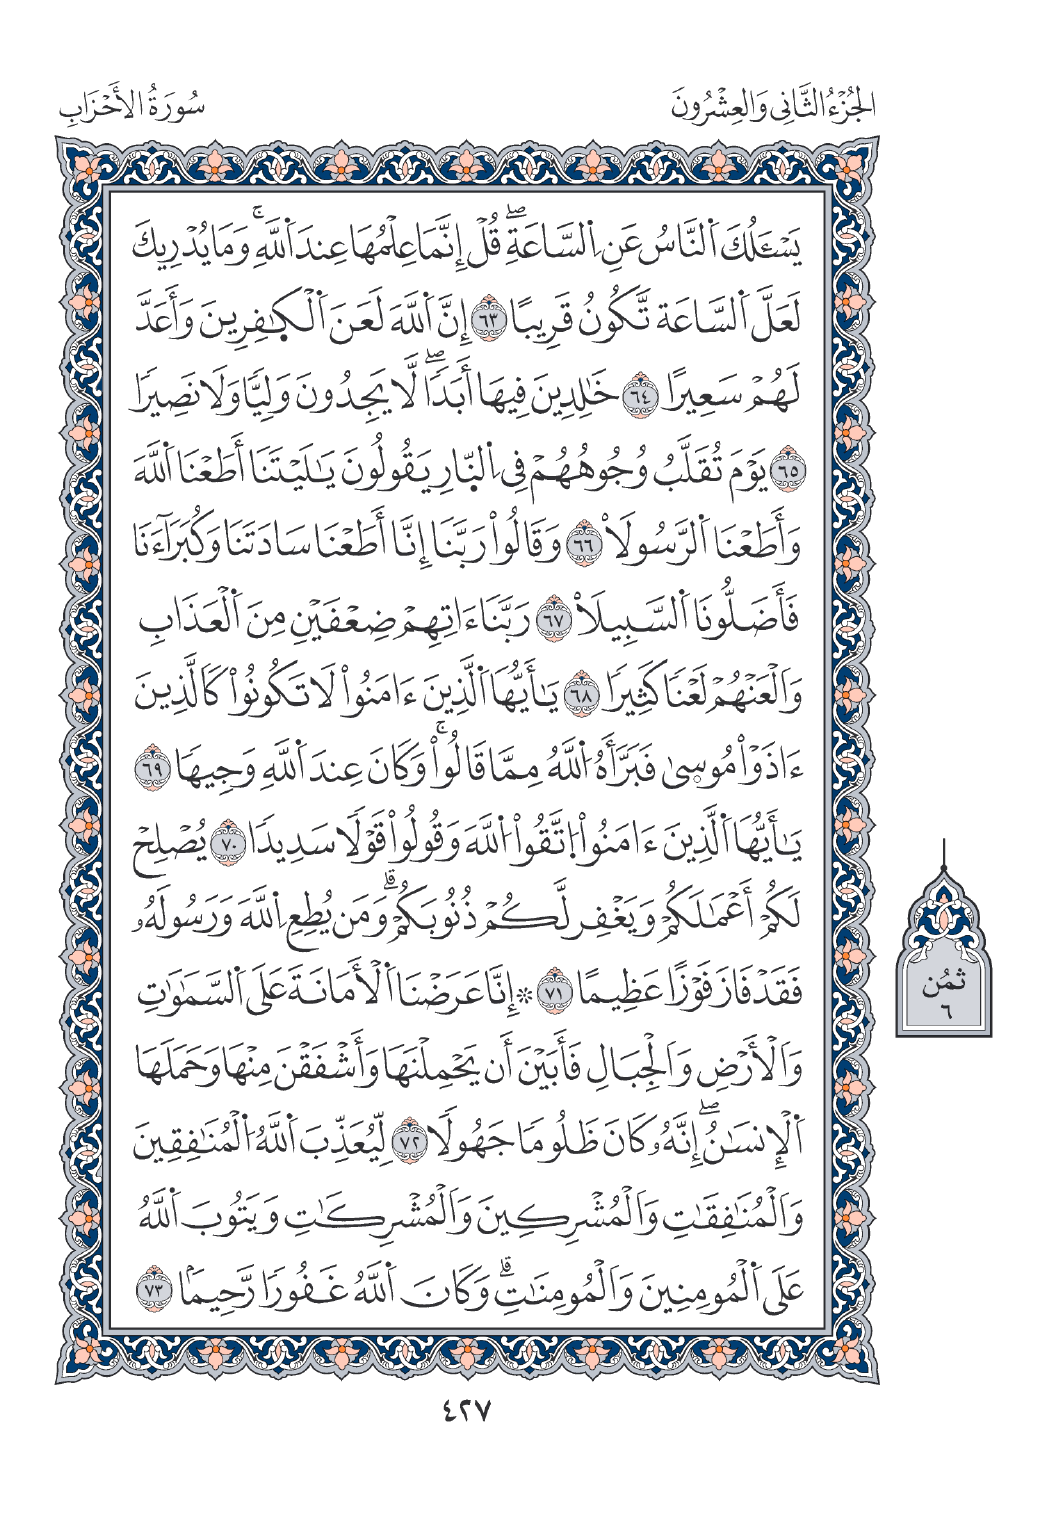 الجُزْءُ الثَّانِي وَالعِشْرُونَ
سُورَةُ الأَحْزَابِ
يَسْـَٔلُكَ اَ۬لنَّاسُ عَنِ اِ۬لسَّاعَةِۖ قُلْ إِنَّمَا عِلْمُهَا عِندَ اَ۬للَّهِۚ وَمَا يُدْرِيكَ
لَعَلَّ اَ۬لسَّاعَة تَّكُونُ قَرِيبًا ٦٣ إِنَّ اَ۬للَّهَ لَعَنَ اَ۬لْكٰفِرِينَ وَأَعَدَّ
لَهُمْ سَعِيرًا ٦٤ خَٰلِدِينَ فِيهَا أَبَدٗاۖ لَّا يَجِدُونَ وَلِيّٗا وَلَا نَصِيرٗا
٦٥ يَوْمَ تُقَلَّبُ وُجُوهُهُمْ فِي اِ۬لنّ۪ارِ يَقُولُونَ يَٰلَيْتَنَا أَطَعْنَا اَ۬للَّهَ
وَأَطَعْنَا اَ۬لرَّسُولَاْ ٦٦ وَقَالُواْ رَبَّنَا إِنَّا أَطَعْنَا سَادَتَنَا وَكُبَرَآءَنَا
فَأَضَلُّونَا اَ۬لسَّبِيلَاْ ٦٧ رَبَّنَا ءَاتِهِمْ ضِعْفَيْنِ مِنَ اَ۬لْعَذَابِ
وَالْعَنْهُمْ لَعْنٗا كَثِيرٗا ٦٨ يَٰأَيُّهَا اَ۬لَّذِينَ ءَامَنُواْ لَا تَكُونُواْ كَالَّذِينَ
ءَاذَوْاْ مُوس۪يٰ فَبَرَّأَهُ اُ۬للَّهُ مِمَّا قَالُواْۚ وَكَانَ عِندَ اَ۬للَّهِ وَجِيهٗا ٦٩
يَٰأَيُّهَا اَ۬لَّذِينَ ءَامَنُواْ اُ۪تَّقُواْ اُ۬للَّهَ وَقُولُواْ قَوْلٗا سَدِيدٗا ٧٠ يُصْلِحْ
لَكُمْ أَعْمَٰلَكُمْ وَيَغْفِر لَّكُمْ ذُنُوبَكُمْۗ وَمَن يُطِعِ اِ۬للَّهَ وَرَسُولَهُۥ
فَقَدْ فَازَ فَوْزًا عَظِيمًا ٧١ ۞ إِنَّا عَرَضْنَا اَ۬لْأَمَانَةَ عَلَى اَ۬لسَّمَٰوَٰتِ
وَالْأَرْضِ وَالْجِبَالِ فَأَبَيْنَ أَن يَحْمِلْنَهَا وَأَشْفَقْنَ مِنْهَا وَحَمَلَهَا
اَ۬لْإِنسَٰنُۖ إِنَّهُۥ كَانَ ظَلُومٗا جَهُولٗا ٧٢ لِّيُعَذِّبَ اَ۬للَّهُ اُ۬لْمُنَٰفِقِينَ
وَالْمُنَٰفِقَٰتِ وَالْمُشْرِكِينَ وَالْمُشْرِكَٰتِ وَيَتُوبَ اَ۬للَّهُ
عَلَى اَ۬لْمُومِنِينَ وَالْمُومِنَٰتِۗ وَكَانَ اَ۬للَّهُ غَفُورٗا رَّحِيمٗا ٧٣
ثمُن
٦
٤٢٧